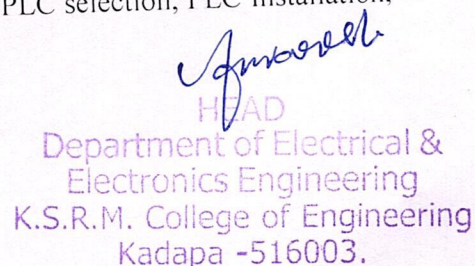 PLC selection, PLC installation,
HEAD
Department of Electrical &
Electronics Engineering
K.S.R.M. College of Engineering
Kadapa -516003.